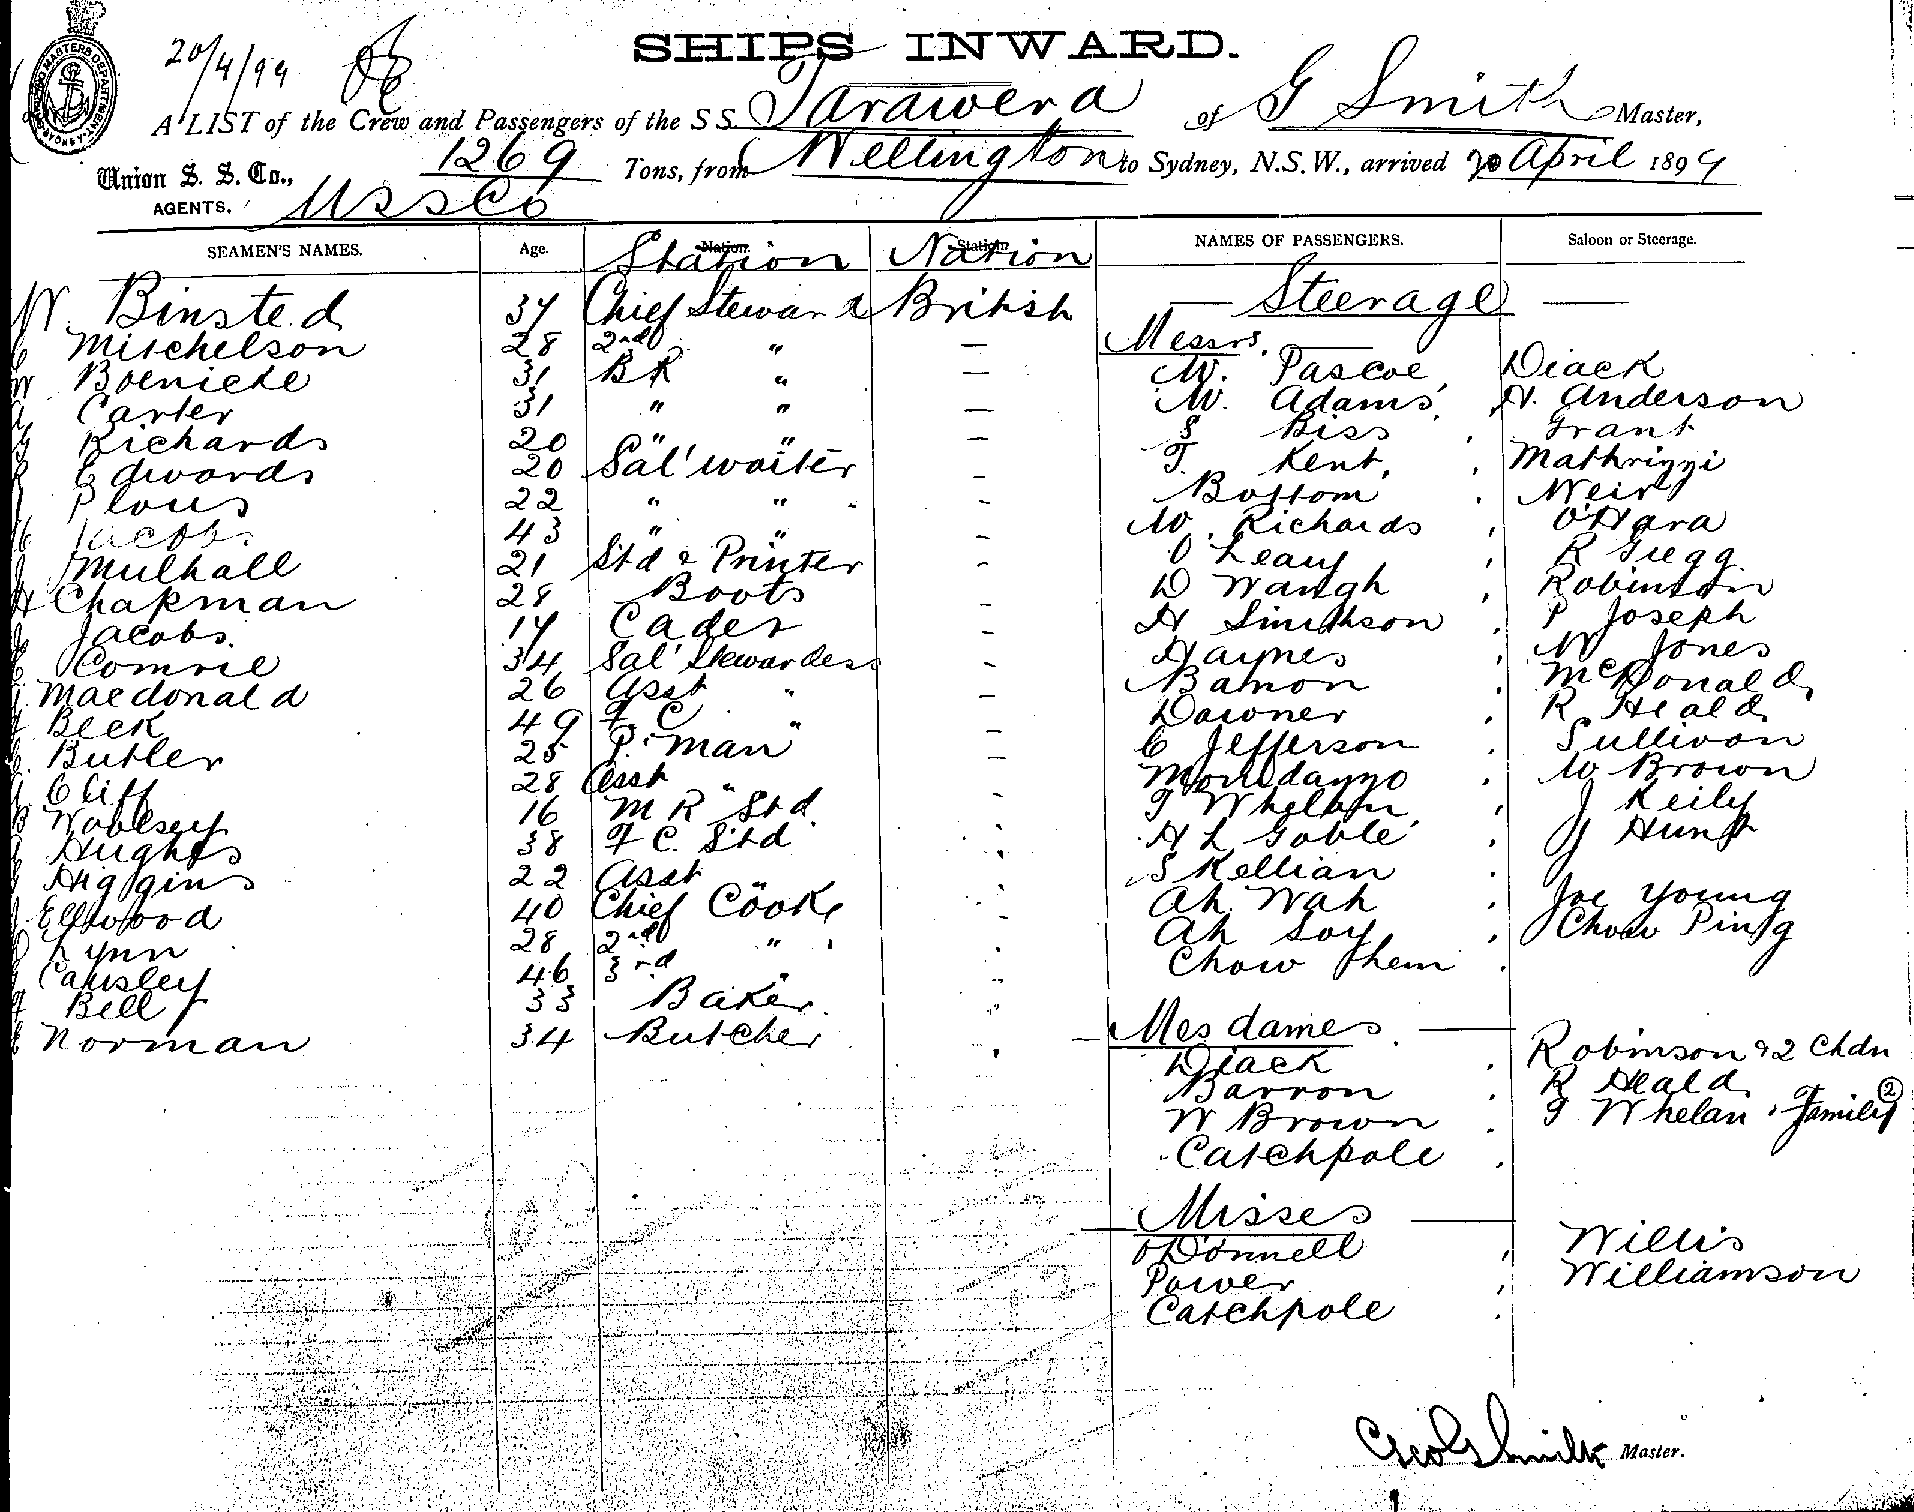 20/4/99
SHIPS INWARD.
A LIST of the Crew and Passengers of the S S. Tarawera of G Smith Master,
1269 Tons, from Wellington to Sydney, N.S.W., arrived 20 April 1899
Union S. S. Co.,
AGENTS. USSCo
SEAMEN'S NAMES. Age. Nation Station Station Nation NAMES OF PASSENGERS. Saloon or Steerage.
— Steerage —
W. Binsted 37 Chief Steward British
Messrs.
Mitchelson 28 2nd " —
W. Pascoe, Diack
Boenicke 31 BR " —
W. Adams, H. Anderson
Carter 31 " " —
S Biss, Grant
Richards 20 " " —
T. Kent, Mathrizzi
Edwards 20 Sal' waiter -
Bottom, Weir
Plous 22 " " -
W. Richards, O'Hara
Jacobs 43 " " -
O'Leary, R Gregg
Mulhall 21 Std & Printer -
D Waugh, Robinson
Chapman 28 Boots -
H Smithson, P Joseph
Jacobs. 17 Cadet -
Haynes, W Jones
Comrie 34 Sal' Stewardess -
Bamon, McDonald
Macdonald 26 Asst " -
Downer, R Heald
Beck 49 F. C "
C Jefferson, Sullivan
Butler 25 P. man -
W Brown
Cliff 28 Asst " -
T Whelan, J Keily
16 M R Std.
H L Goble, J Hunt
Hughes 38 F C. Std
S Kellian
Higgins 22 Asst "
Ah Wah, Joe Young
Ellwood 40 Chief Cooke
Ah Soy, Chow Ping
Lynn 28 2nd "
Chow Them
Causley 46 3rd "
Bell 33 Baker
Norman 34 Butcher
Mesdames —
Diack, Robinson & 2 Chdn
Barron, R Heald
W Brown, T Whelan & Family 2
Catchpole
Misses —
O'Donnell, Willis
Power, Williamson
Catchpole
Geo G Smith Master.